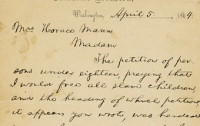 Washington, April 5, 1864.
Mrs Horace Mann,
Madam,
The petition of per-
sons under eighteen, praying that
I would free all slave children,
and the heading of which petition
it appears you wrote, was handed